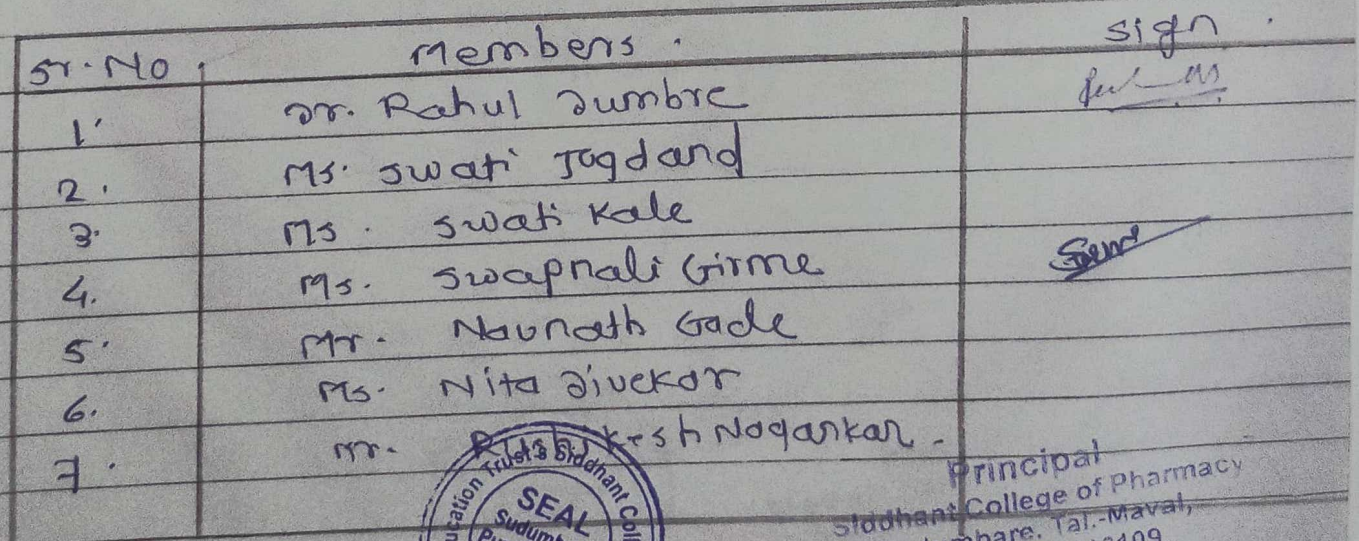 Sr. No. Members. Sign.
1. Dr. Rahul Dumbre
2. Ms. Swati Jagdand
3. Ms. Swati Kale
4. Ms. Swapnali Girme
5. Mr. Navnath Gade
6. Ms. Nita Divekar
7. Mr. Nagarkar.
Trust's Siddhant
SEAL
Principal
Siddhant College of Pharmacy
Tal.-Maval,